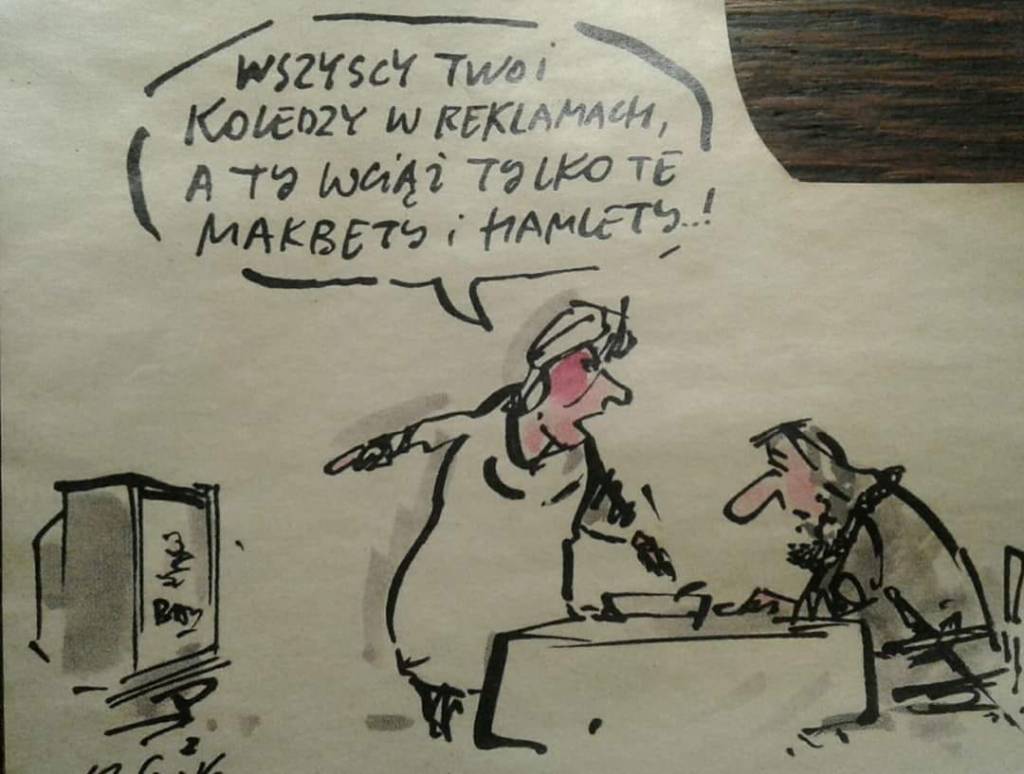 WSZYSCY TWOI
KOLEDZY W REKLAMACH,
A TY WCIĄŻ TYLKO TE
MAKBETY i HAMLETY..!